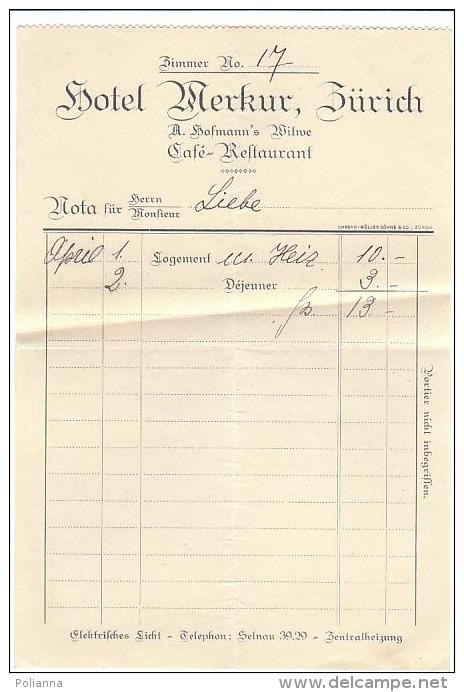 Zimmer No. 17
Hotel Merkur, Zürich
A. Hofmann's Witwe
Café-Restaurant
Nota für Herrn Liebe
Monsieur
EHRSAM-MÜLLER SÖHNE & CO., ZÜRICH
April 1. Logement m. Heiz. 10.-
2. Déjeuner 3.-
13.-
Portier nicht inbegriffen.
Elektrisches Licht - Telephon: Selnau 39.29 - Zentralheizung
Polianna
delcampe.net